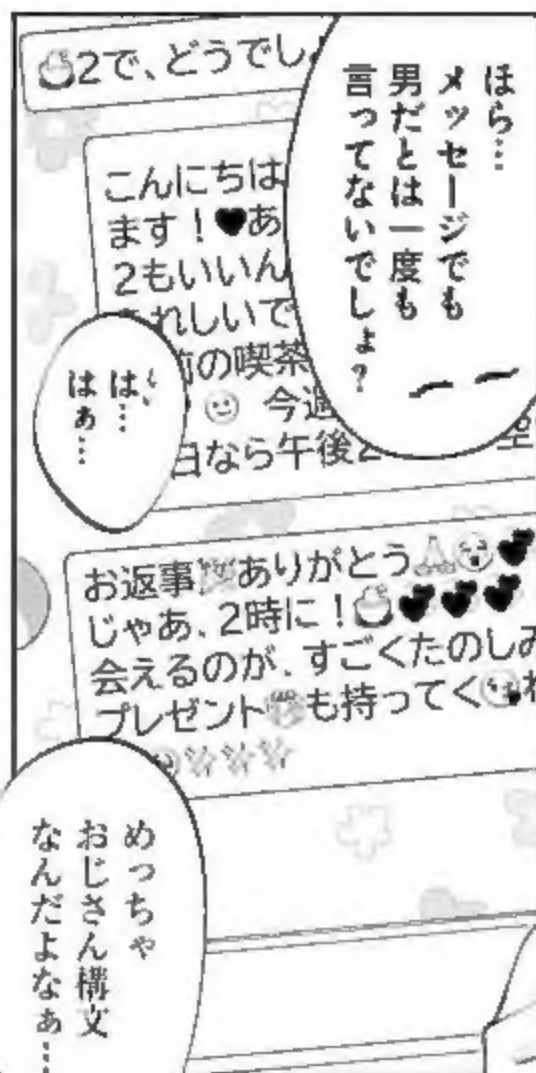 ほら…
メッセージでも
男だとは一度も
言ってないでしょ?
🍮2で、どうでし
こんにちは
ます!♥あ
2もいいん
れしいで
前の喫茶
☺ 今週
日なら午後2
空
は…
はぁ…
お返事💌ありがとう🙏😚💕
じゃあ、2時に!🍮💕💕💕
会えるのが、すごくたのしみ
プレゼント🎁も持ってく😘ね
✨✨✨
めっちゃ
おじさん構文
なんだよなぁ…